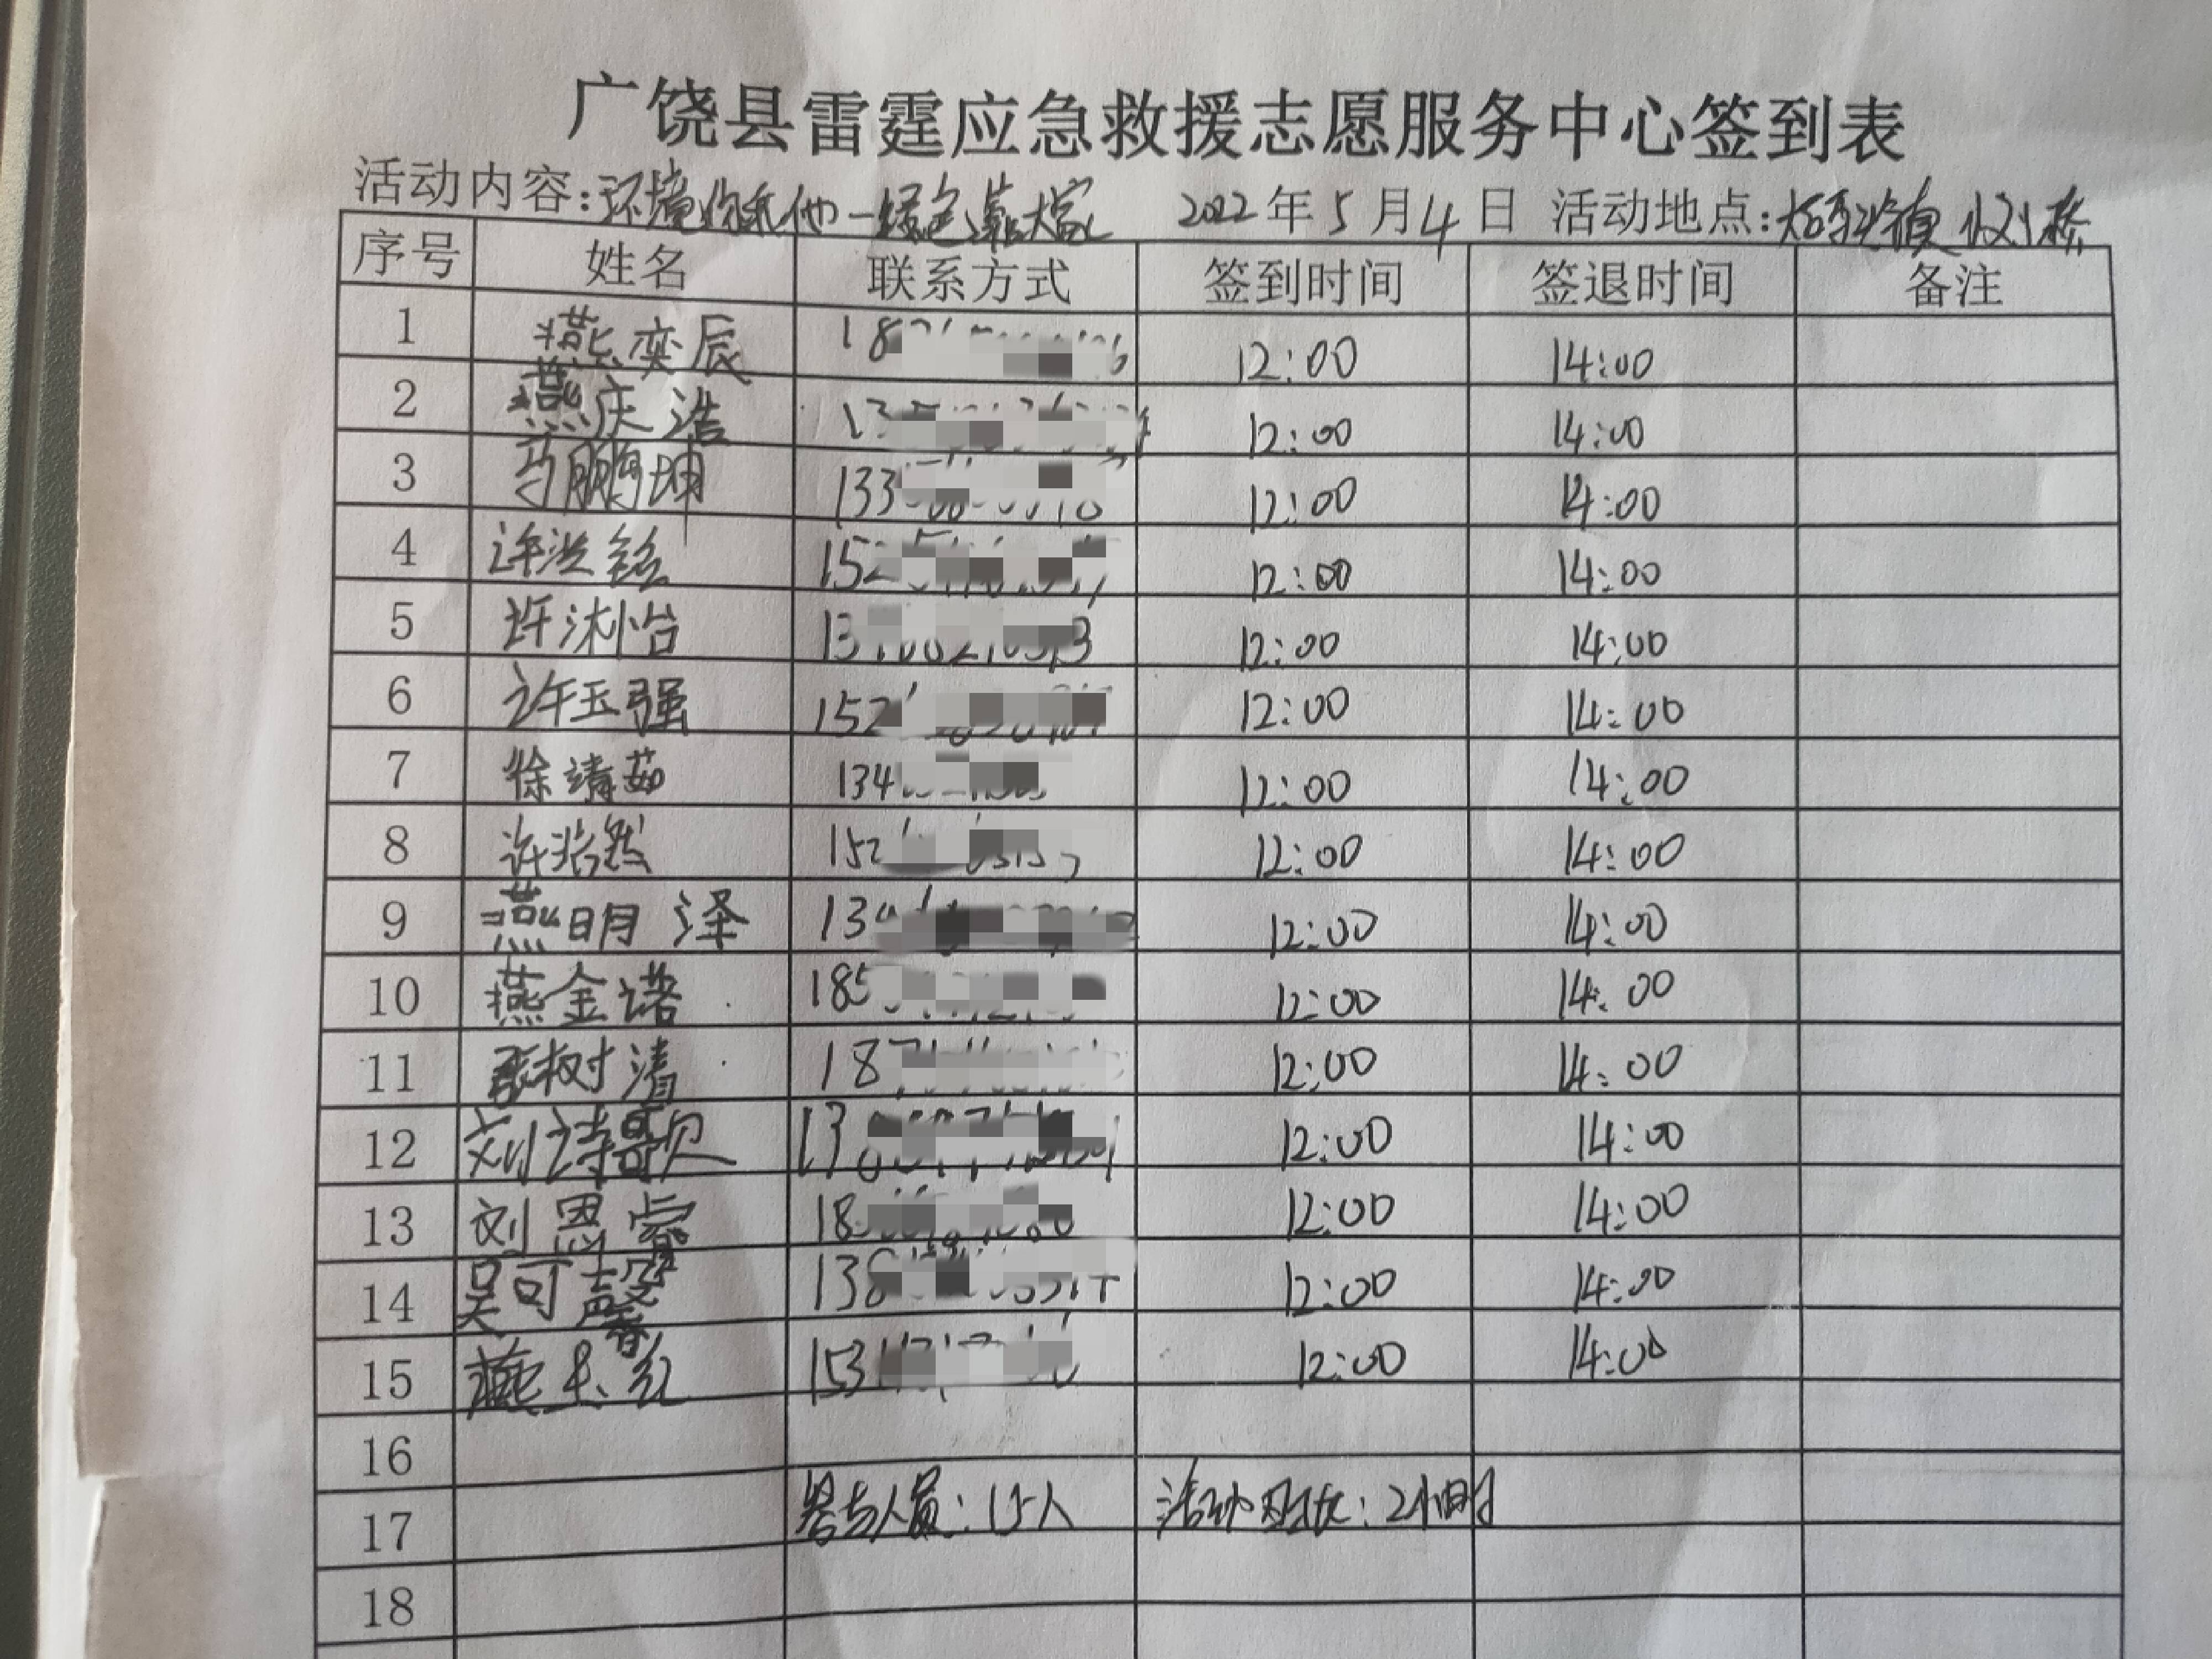 广饶县雷霆应急救援志愿服务中心签到表
活动内容:环境你我他一绿色靠大家 2022年5月4日 活动地点:大码头镇
序号 姓名 联系方式 签到时间 签退时间 备注
1 燕奕辰 18 12:00 14:00
2 燕庆浩 13 12:00 14:00
3 马鹏坤 133 12:00 14:00
4 许洪铭 152 12:00 14:00
5 许沐怡 13 12:00 14:00
6 许玉强 152 12:00 14:00
7 徐靖茹 134 12:00 14:00
8 许浩然 152 12:00 14:00
9 燕明泽 13 12:00 14:00
10 燕金诺 185 12:00 14:00
11 树清 18 12:00 14:00
12 刘诗歌 13 12:00 14:00
13 刘恩睿 18 12:00 14:00
14 吴可馨 138 12:00 14:00
15 燕 红 153 12:00 14:00
16
17 参与人员:15人 活动时长:2小时
18